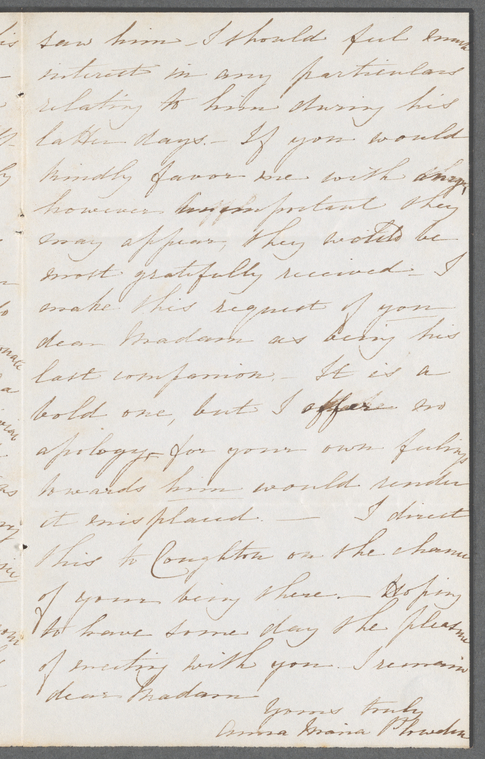 saw him - I should feel much
interest in any particulars
relating to him during his
latter days. - If you would
kindly favor me with any,
however unimportant they
may appear, they would be
most gratefully received - I
make this request of you
dear Madam as being his
last companion. - It is a
bold one, but I offer no
apology, for your own feelings
towards him would render
it misplaced. — I direct
this to Coughton on the chance
of your being there. - Hoping
to have some day the pleasure
of meeting with you. I remain
dear Madam
Yours truly
Anna Maria Plowden